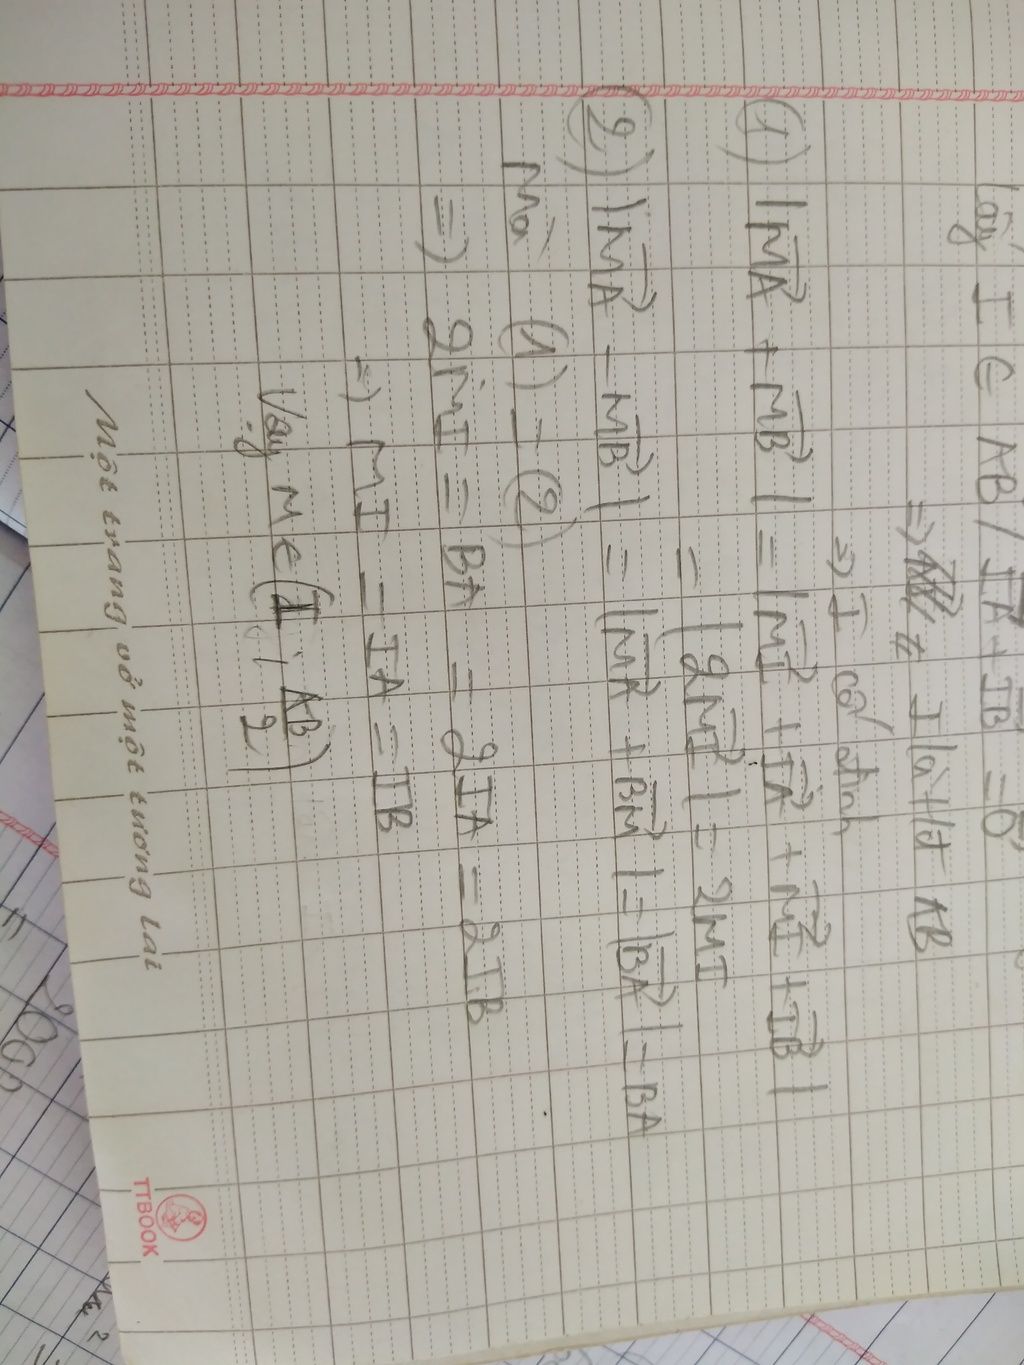 Lấy I ∈ AB / \overrightarrow{IA} + \overrightarrow{IB} = \vec{0}
=> I là tđ AB
=> I cố định
(1) |\overrightarrow{MA} + \overrightarrow{MB}| = |\overrightarrow{MI} + \overrightarrow{IA} + \overrightarrow{MI} + \overrightarrow{IB}|
= |2\overrightarrow{MI}| = 2MI
(2) |\overrightarrow{MA} - \overrightarrow{MB}| = |\overrightarrow{MA} + \overrightarrow{BM}| = |\overrightarrow{BA}| = BA
Mà (1) = (2)
=> 2MI = BA = 2IA = 2IB
=> MI = IA = IB
Vậy M ∈ (I ; \frac{AB}{2})
Một trang vở một tương lai
TTBOOK